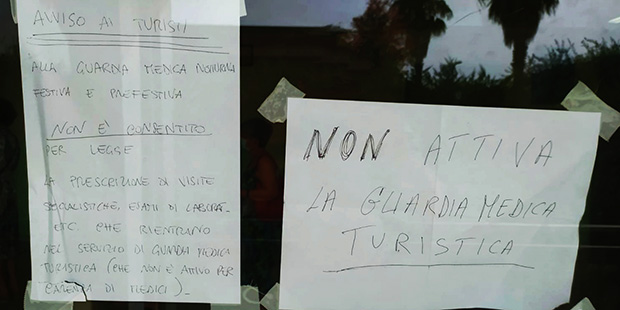 AVVISO AI TURISTI
ALLA GUARDIA MEDICA NOTTURNA
FESTIVA E PREFESTIVA
NON È CONSENTITO
PER LEGGE
LA PRESCRIZIONE DI VISITE
SPECIALISTICHE, ESAMI DI LABORAT.
ETC. CHE RIENTRANO
NEL SERVIZIO DI GUARDIA MEDICA
TURISTICA (CHE NON È ATTIVO PER
CARENZA DI MEDICI)_
NON ATTIVA
LA GUARDIA MEDICA
TURISTICA